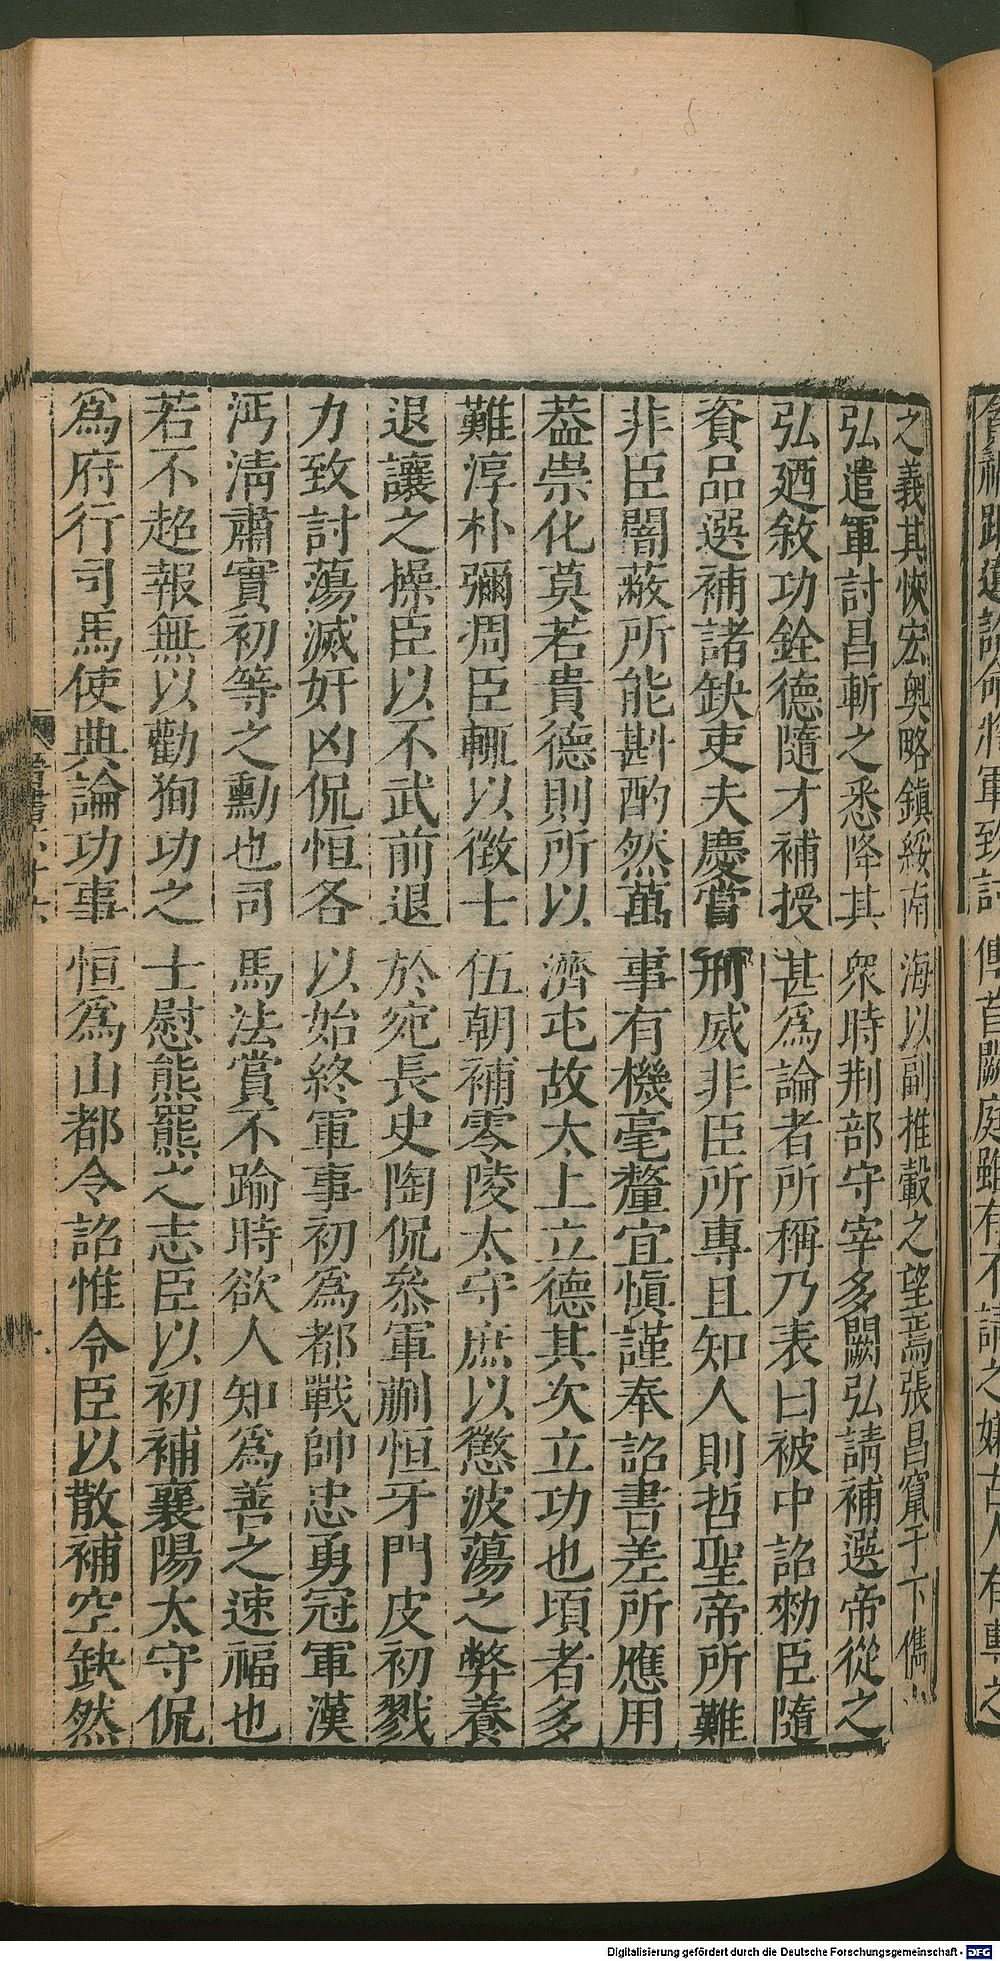 軍致討傳首闕庭雖有不請之嫌古人有專之
之義其恢宏奧略鎮綏南海以副推轂之望焉張昌竄于下儁山
弘遣軍討昌斬之悉降其衆時荆部守宰多闕弘請補選帝從之
弘廼敘功銓德隨才補授甚爲論者所稱乃表曰被中詔勑臣隨
資品選補諸缺吏夫慶賞刑威非臣所專且知人則哲聖帝所難
非臣闇蔽所能斟酌然萬事有機毫釐宜愼謹奉詔書差所應用
葢崇化莫若貴德則所以濟屯故太上立德其次立功也頃者多
難淳朴彌凋臣輒以徵士伍朝補零陵太守庶以懲波蕩之弊養
退讓之操臣以不武前退於宛長史陶侃叅軍蒯恒牙門皮初戮
力致討蕩滅奸凶侃恒各以始終軍事初爲都戰帥忠勇冠軍漢
沔淸肅實初等之勳也司馬法賞不踰時欲人知爲善之速福也
若不超報無以勸狥功之士慰熊羆之志臣以初補襄陽太守侃
爲府行司馬使典論功事恒爲山都令詔惟令臣以散補空缺然
Digitalisierung gefördert durch die Deutsche Forschungsgemeinschaft - DFG